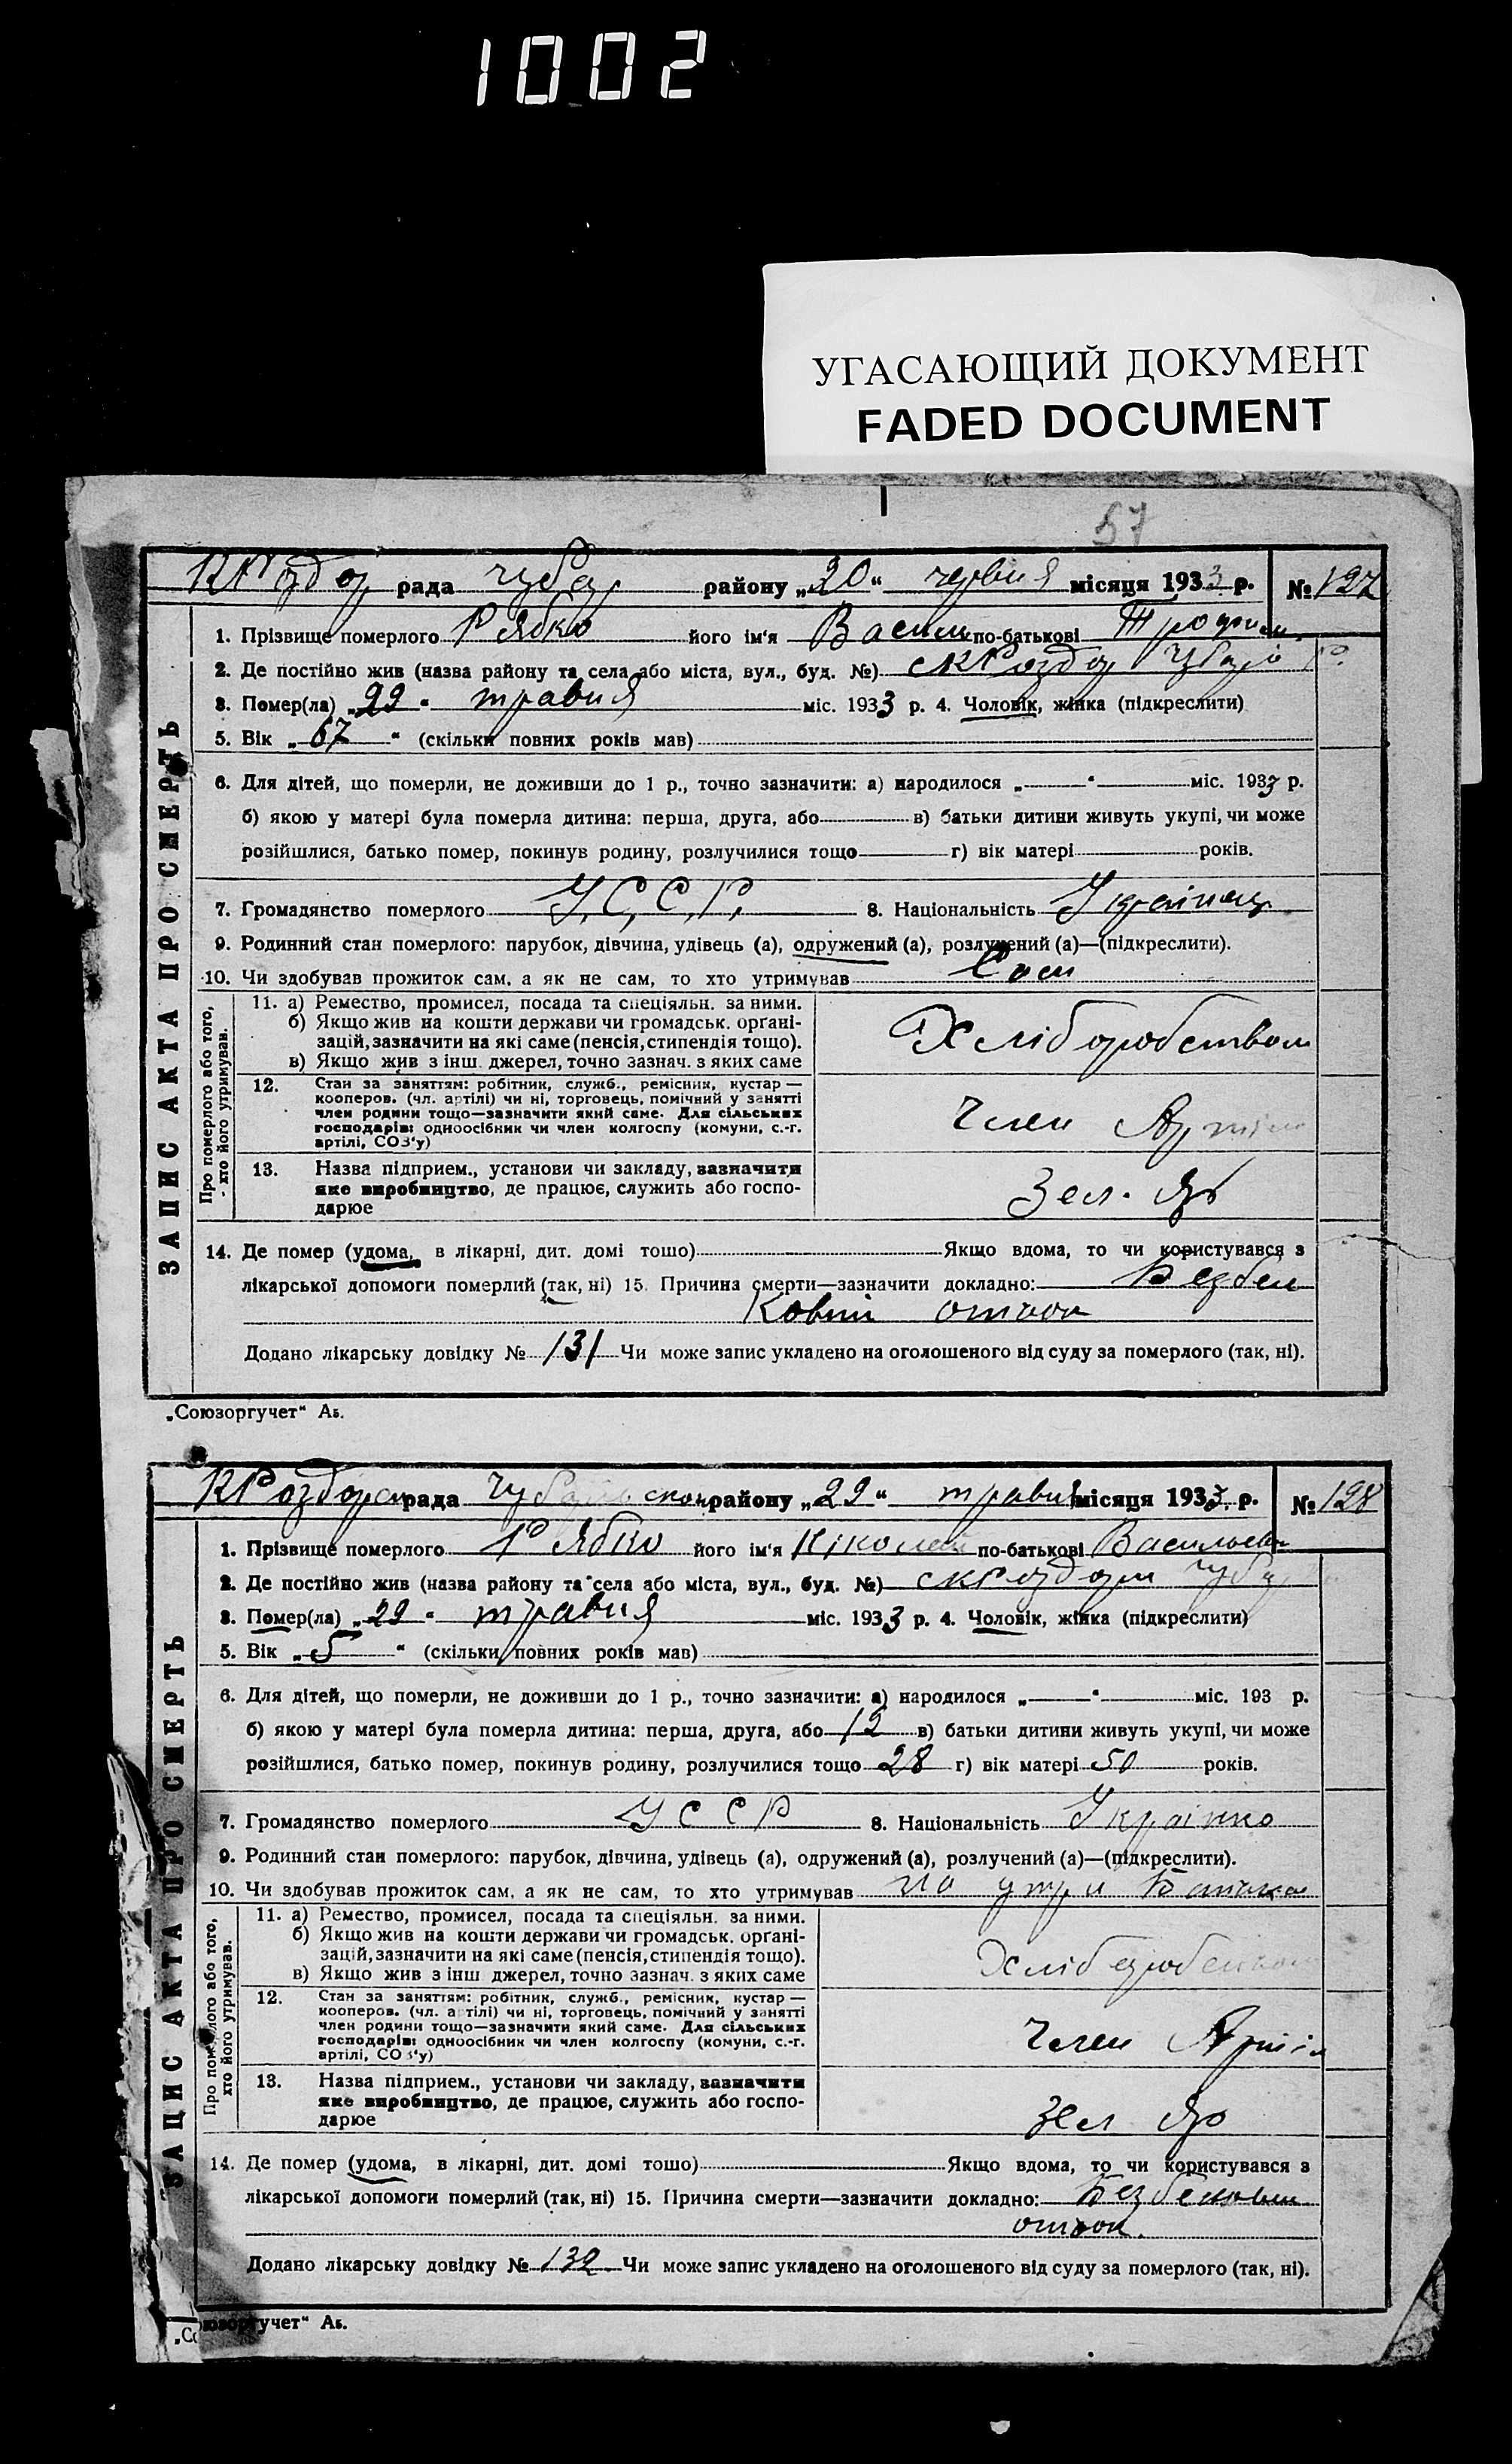 1002
УГАСАЮЩИЙ ДОКУМЕНТ
FADED DOCUMENT
57
КРоздор рада Чубар району „20“ червня місяця 1933 р. № 127
1. Прізвище померлого Рябко його ім'я Васил по-батькові Трофим.
2. Де постійно жив (назва району та села або міста, вул., буд. №) с КРоздор Чубар р.
3. Помер(ла) „29“ травня міс. 1933 р. 4. Чоловік, жінка (підкреслити)
5. Вік „67“ (скільки повних років мав)
6. Для дітей, що померли, не доживши до 1 р., точно зазначити: а) народилося „ “ міс. 1933 р.
б) якою у матері була померла дитина: перша, друга, або в) батьки дитини живуть укупі, чи може
розійшлися, батько помер, покинув родину, розлучилися тощо г) вік матері років.
7. Громадянство померлого У.С.С.Р. 8. Національність Українец
9. Родинний стан померлого: парубок, дівчина, удівець (а), одружений (а), розлучений (а)—(підкреслити).
10. Чи здобував прожиток сам, а як не сам, то хто утримував Сам
ЗАПИС АКТА ПРО СМЕРТЬ
Про померлого або того,
хто його утримував.
11. а) Ремество, промисел, посада та спеціяльн. за ними.
б) Якщо жив на кошти держави чи громадськ. орґані-
зацій, зазначити на які саме (пенсія, стипендія тощо).
в) Якщо жив з інш. джерел, точно зазнач. з яких саме
Хліборобством
12. Стан за заняттям: робітник, служб., ремісник, кустар —
кооперов. (чл. артілі) чи ні, торговець, помічний у занятті
член родини тощо—зазначити який саме. Для сільських
господарів: одноосібник чи член колгоспу (комуни, с.-г.
артілі, СОЗ'у)
Член Артіли
13. Назва підприєм., установи чи закладу, зазначити
яке виробництво, де працює, служить або госпо-
дарює
Зел. Яр
14. Де помер (удома, в лікарні, дит. домі тошо) Якщо вдома, то чи користувався з
лікарської допомоги померлий (так, ні) 15. Причина смерти—зазначити докладно: Безбел
ковий отьок
Додано лікарську довідку № 131 Чи може запис укладено на оголошеного від суду за померлого (так, ні).
„Союзоргучет“ Аь.
КРоздорск рада Чубарівською району „29“ травня місяця 1933 р. № 128
1. Прізвище померлого Рябко його ім'я Ніколай по-батькові Васильев
2. Де постійно жив (назва району та села або міста, вул., буд. №) с КРоздори Чубар
3. Помер(ла) „29“ травня міс. 1933 р. 4. Чоловік, жінка (підкреслити)
5. Вік „5“ (скільки повних років мав)
6. Для дітей, що померли, не доживши до 1 р., точно зазначити: а) народилося „ “ міс. 193 р.
б) якою у матері була померла дитина: перша, друга, або 12 в) батьки дитини живуть укупі, чи може
розійшлися, батько помер, покинув родину, розлучилися тощо 28 г) вік матері 50 років.
7. Громадянство померлого УССР 8. Національність Українко
9. Родинний стан померлого: парубок, дівчина, удівець (а), одружений (а), розлучений (а)—(підкреслити).
10. Чи здобував прожиток сам, а як не сам, то хто утримував На утри Батька
ЗАПИС АКТА ПРО СМЕРТЬ
Про померлого або того,
хто його утримував.
11. а) Ремество, промисел, посада та спеціяльн. за ними.
б) Якщо жив на кошти держави чи громадськ. орґані-
зацій, зазначити на які саме (пенсія, стипендія тощо).
в) Якщо жив з інш джерел, точно зазнач. з яких саме
Хліборобством
12. Стан за заняттям: робітник, служб., ремісник, кустар —
кооперов. (чл. артілі) чи ні, торговець, помічний у занятті
член родини тощо—зазначити який саме. Для сільських
господарів: одноосібник чи член колгоспу (комуни, с.-г.
артілі, СОЗ'у)
Член Артіл
13. Назва підприєм., установи чи закладу, зазначити
яке виробництво, де працює, служить або госпо-
дарює
Зел Яр
14. Де помер (удома, в лікарні, дит. домі тошо) Якщо вдома, то чи користувався з
лікарської допомоги померлий (так, ні) 15. Причина смерти—зазначити докладно: Безбелковий
отьок.
Додано лікарську довідку № 132 Чи може запис укладено на оголошеного від суду за померлого (так, ні).
„Союзоргучет“ Аь.